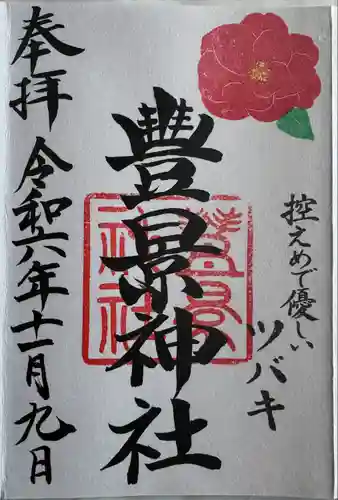 控えめで優しい
ツバキ
豊景神社
奉拝
令和六年十一月九日